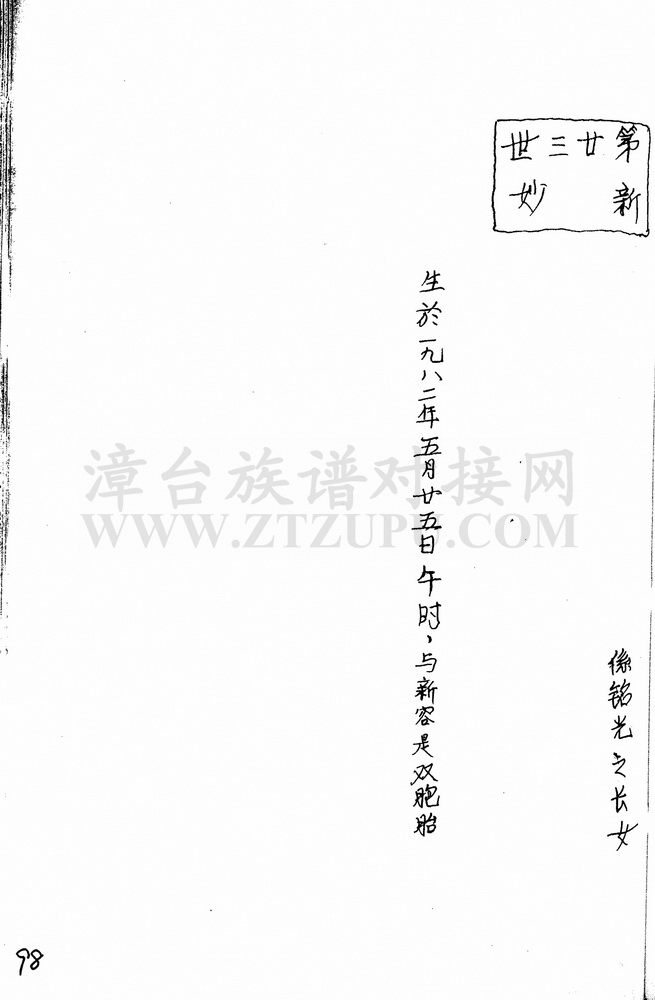 第廿三世
新妙
係铭光之长女
生於一九八二年五月廿五日午时，与新容是双胞胎
漳台族谱对接网
WWW.ZTZUPU.COM
98